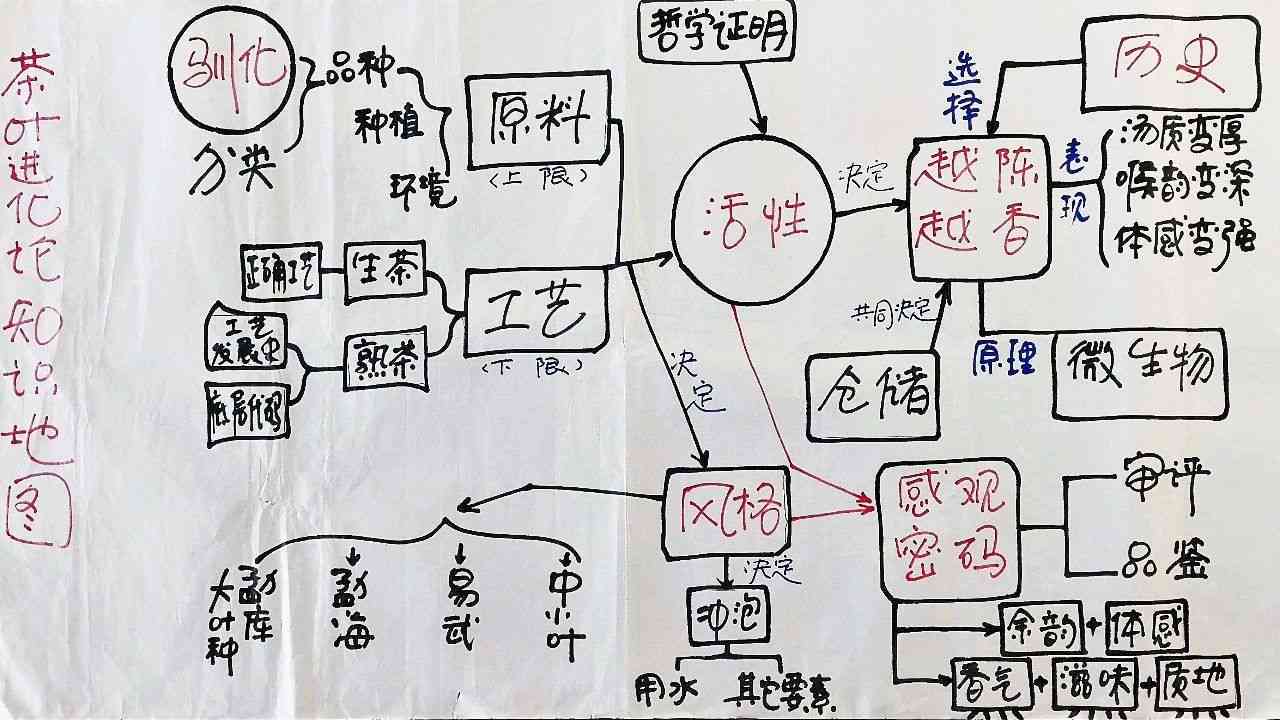 茶叶进化论知识地图
驯化
分类
品种
种植
环境
原料
(上限)
工艺
(下限)
生茶
正确工艺
熟茶
工艺
发展史
底层代码
哲学证明
活性
决定
越陈
越香
选择
历史
表现
汤质变厚
喉韵变深
体感变强
共同决定
仓储
原理
微生物
决定
风格
勐库
大叶种
勐海
易武
中小叶
决定
冲泡
用水
其它要素
感观
密码
审评
品鉴
余韵+体感
香气+滋味+质地